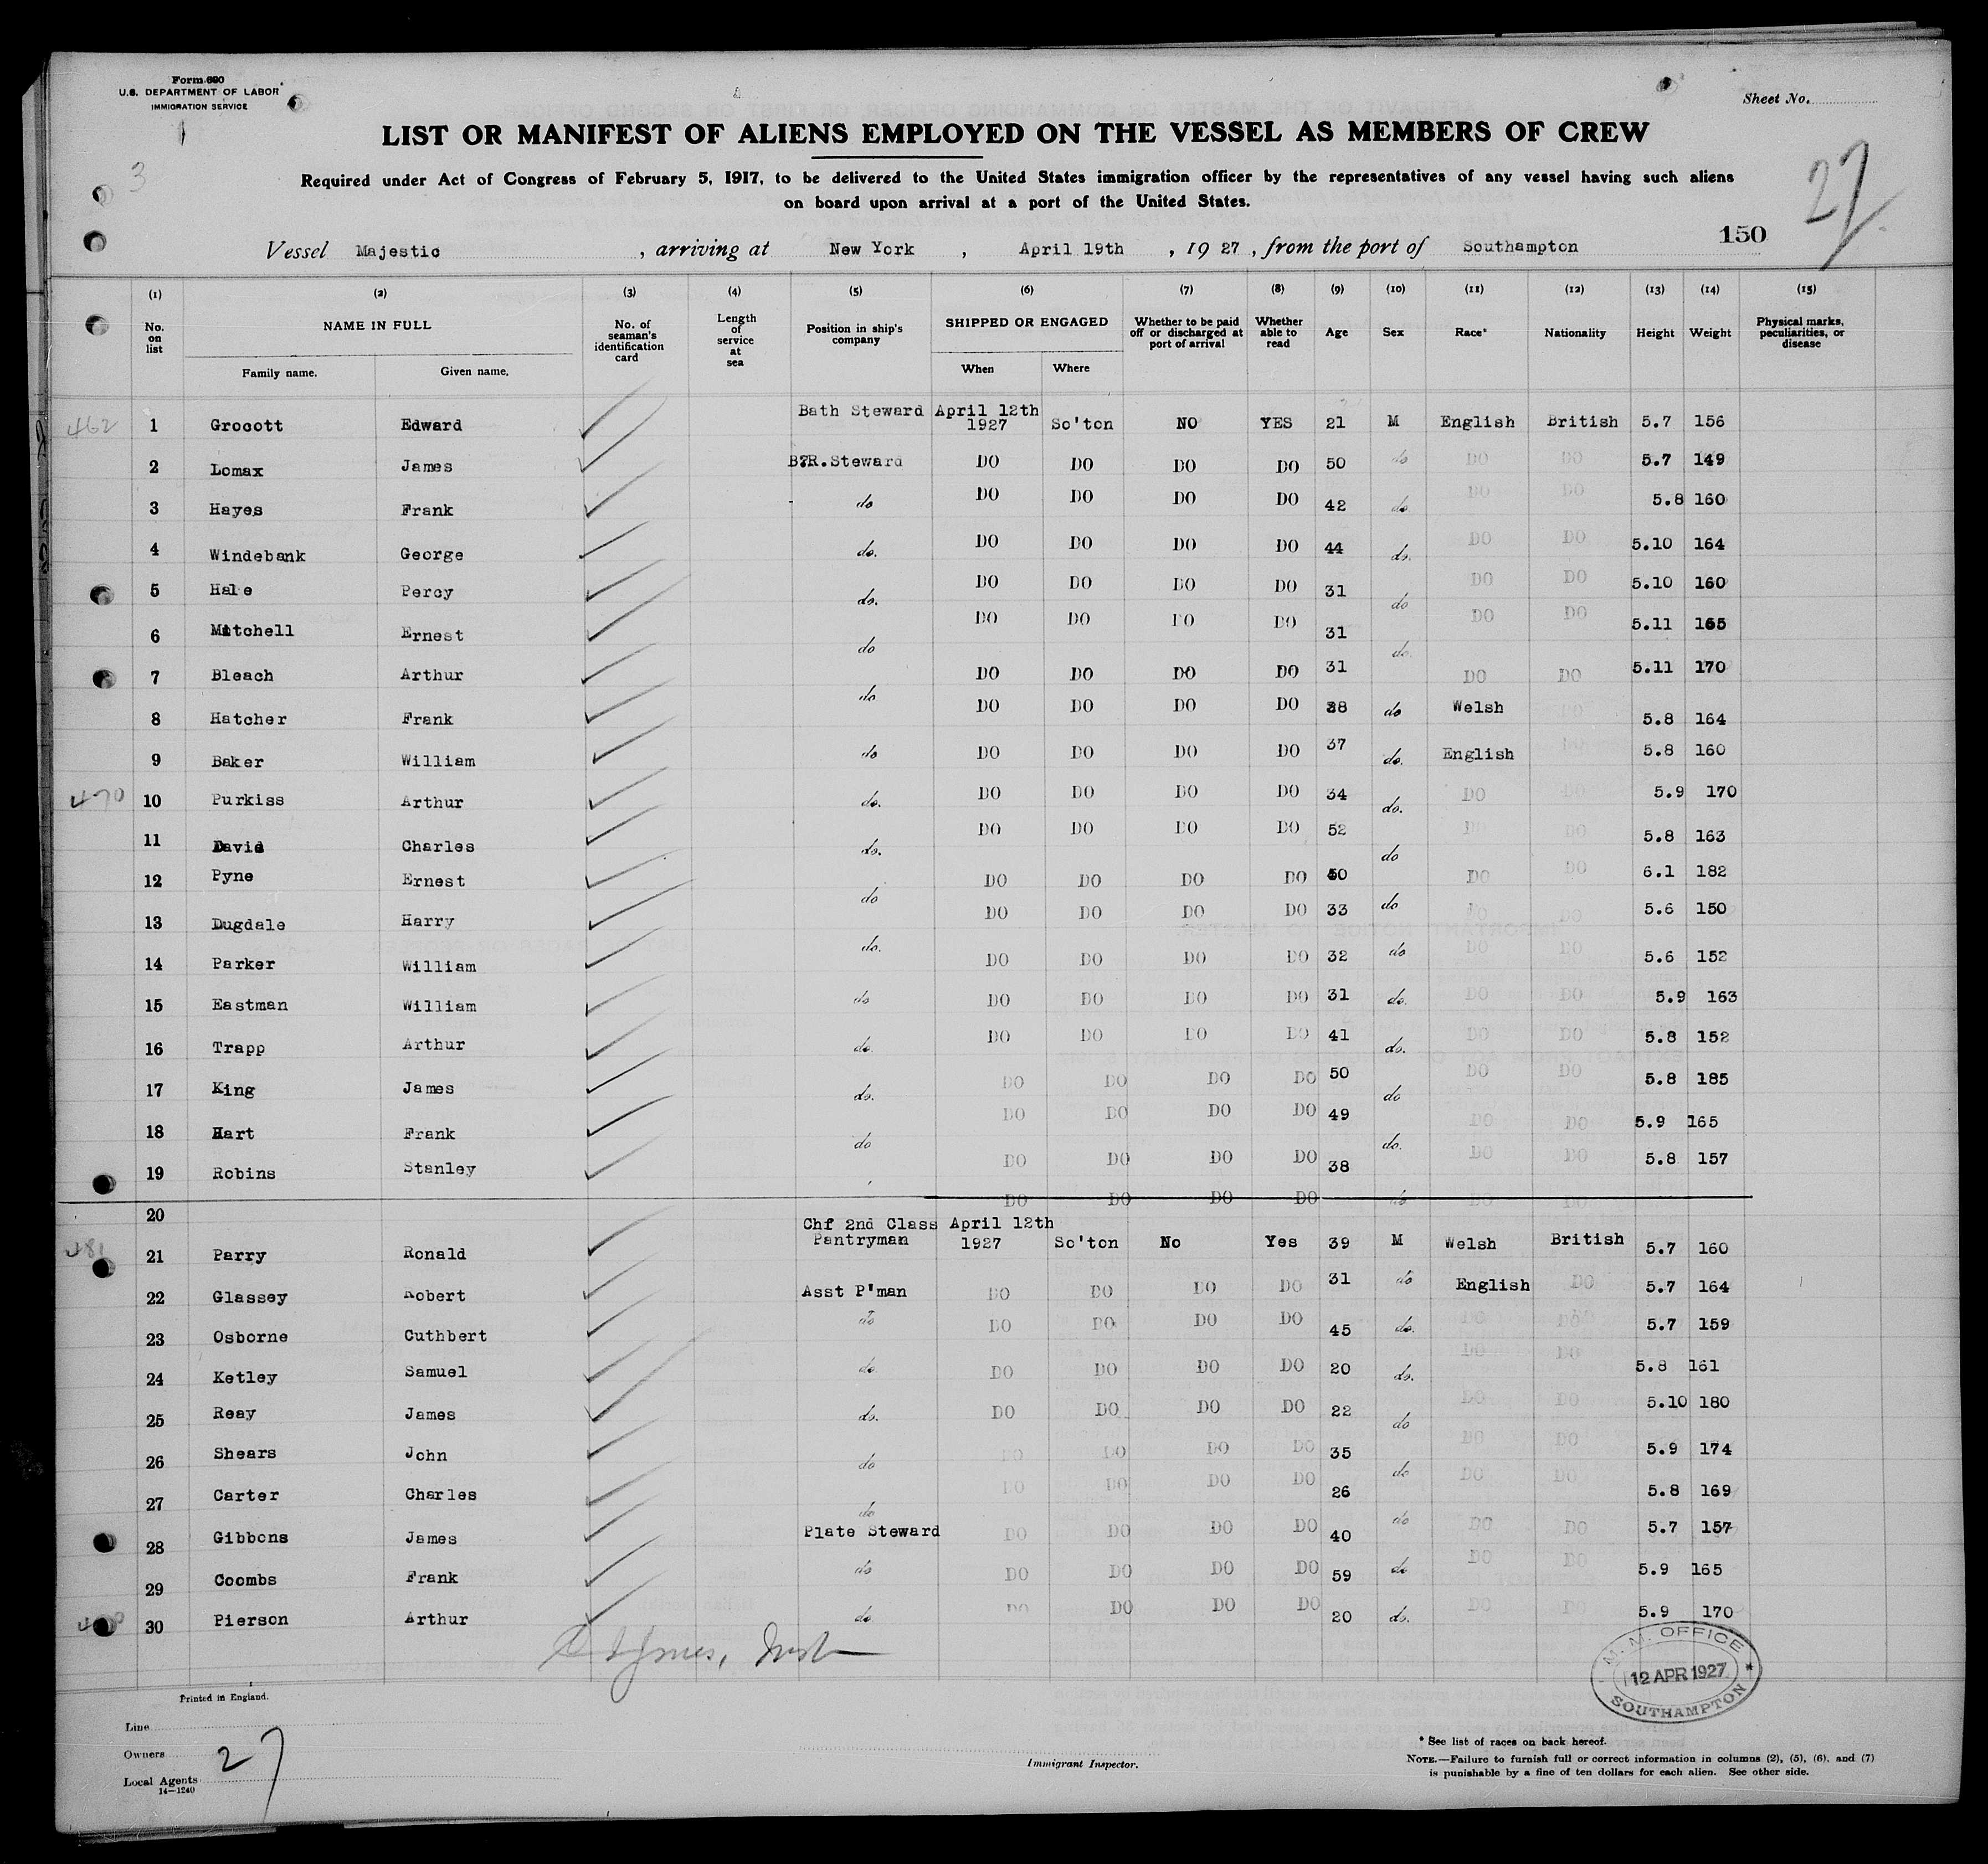 Form 690
U.S. DEPARTMENT OF LABOR
IMMIGRATION SERVICE
Sheet No.
1
3
LIST OR MANIFEST OF ALIENS EMPLOYED ON THE VESSEL AS MEMBERS OF CREW
27
Required under Act of Congress of February 5, 1917, to be delivered to the United States immigration officer by the representatives of any vessel having such aliens
on board upon arrival at a port of the United States.
150
Vessel Majestic , arriving at New York , April 19th , 19 27 , from the port of Southampton
(1) (2) (3) (4) (5) (6) (7) (8) (9) (10) (11) (12) (13) (14) (15)
No. on list NAME IN FULL Family name. Given name. No. of seaman's identification card Length of service at sea Position in ship's company SHIPPED OR ENGAGED When Where Whether to be paid off or discharged at port of arrival Whether able to read Age Sex Race* Nationality Height Weight Physical marks, peculiarities, or disease
462 1 Grocott Edward Bath Steward April 12th 1927 So'ton NO YES 21 M English British 5.7 156
2 Lomax James B?R.Steward DO DO DO DO 50 do DO DO 5.7 149
3 Hayes Frank do DO DO DO DO 42 do DO DO 5.8 160
4 Windebank George do. DO DO DO DO 44 do. DO DO 5.10 164
5 Hale Percy do. DO DO DO DO 31 do DO DO 5.10 160
6 Mitchell Ernest do DO DO DO DO 31 do. DO DO 5.11 165
7 Bleach Arthur do DO DO DO DO 31 DO DO 5.11 170
8 Hatcher Frank DO DO DO DO 38 do Welsh DO 5.8 164
9 Baker William do DO DO DO DO 37 do. English DO 5.8 160
470 10 Purkiss Arthur do. DO DO DO DO 34 do. DO DO 5.9 170
11 David Charles do. DO DO DO DO 52 do DO DO 5.8 163
12 Pyne Ernest do DO DO DO DO 50 DO DO 6.1 182
13 Dugdale Harry do. DO DO DO DO 33 do DO DO 5.6 150
14 Parker William DO DO DO DO 32 do DO DO 5.6 152
15 Eastman William do DO DO DO DO 31 do. DO DO 5.9 163
16 Trapp Arthur do. DO DO DO DO 41 do. DO DO 5.8 152
17 King James do. DO DO DO DO 50 do DO DO 5.8 185
18 Hart Frank do DO DO DO DO 49 do. DO DO 5.9 165
19 Robins Stanley DO DO DO DO 38 DO DO 5.8 157
20 DO DO DO DO do DO DO
481 21 Parry Ronald Chf 2nd Class Pantryman April 12th 1927 So'ton No Yes 39 M Welsh British 5.7 160
22 Glassey Robert Asst P'man DO DO DO DO 31 do English DO 5.7 164
23 Osborne Cuthbert do DO DO DO DO 45 do. DO DO 5.7 159
24 Ketley Samuel do DO DO DO DO 20 do. DO DO 5.8 161
25 Reay James do. DO DO DO DO 22 do DO DO 5.10 180
26 Shears John do DO DO DO DO 35 do DO DO 5.9 174
27 Carter Charles do DO DO DO DO 26 DO DO 5.8 169
28 Gibbons James Plate Steward DO DO DO DO 40 do DO DO 5.7 157
29 Coombs Frank do DO DO DO DO 59 do DO DO 5.9 165
30 Pierson Arthur do DO DO DO DO 20 do. DO DO 5.9 170
M.M. OFFICE
12 APR 1927
SOUTHAMPTON
Printed in England.
Line
Owners
27
Local Agents
14—1240
Immigrant Inspector.
* See list of races on back hereof.
NOTE.—Failure to furnish full or correct information in columns (2), (5), (6), and (7)
is punishable by a fine of ten dollars for each alien. See other side.